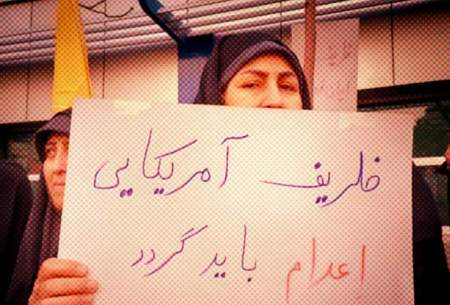 ظریف آمریکایی
اعدام باید گردد